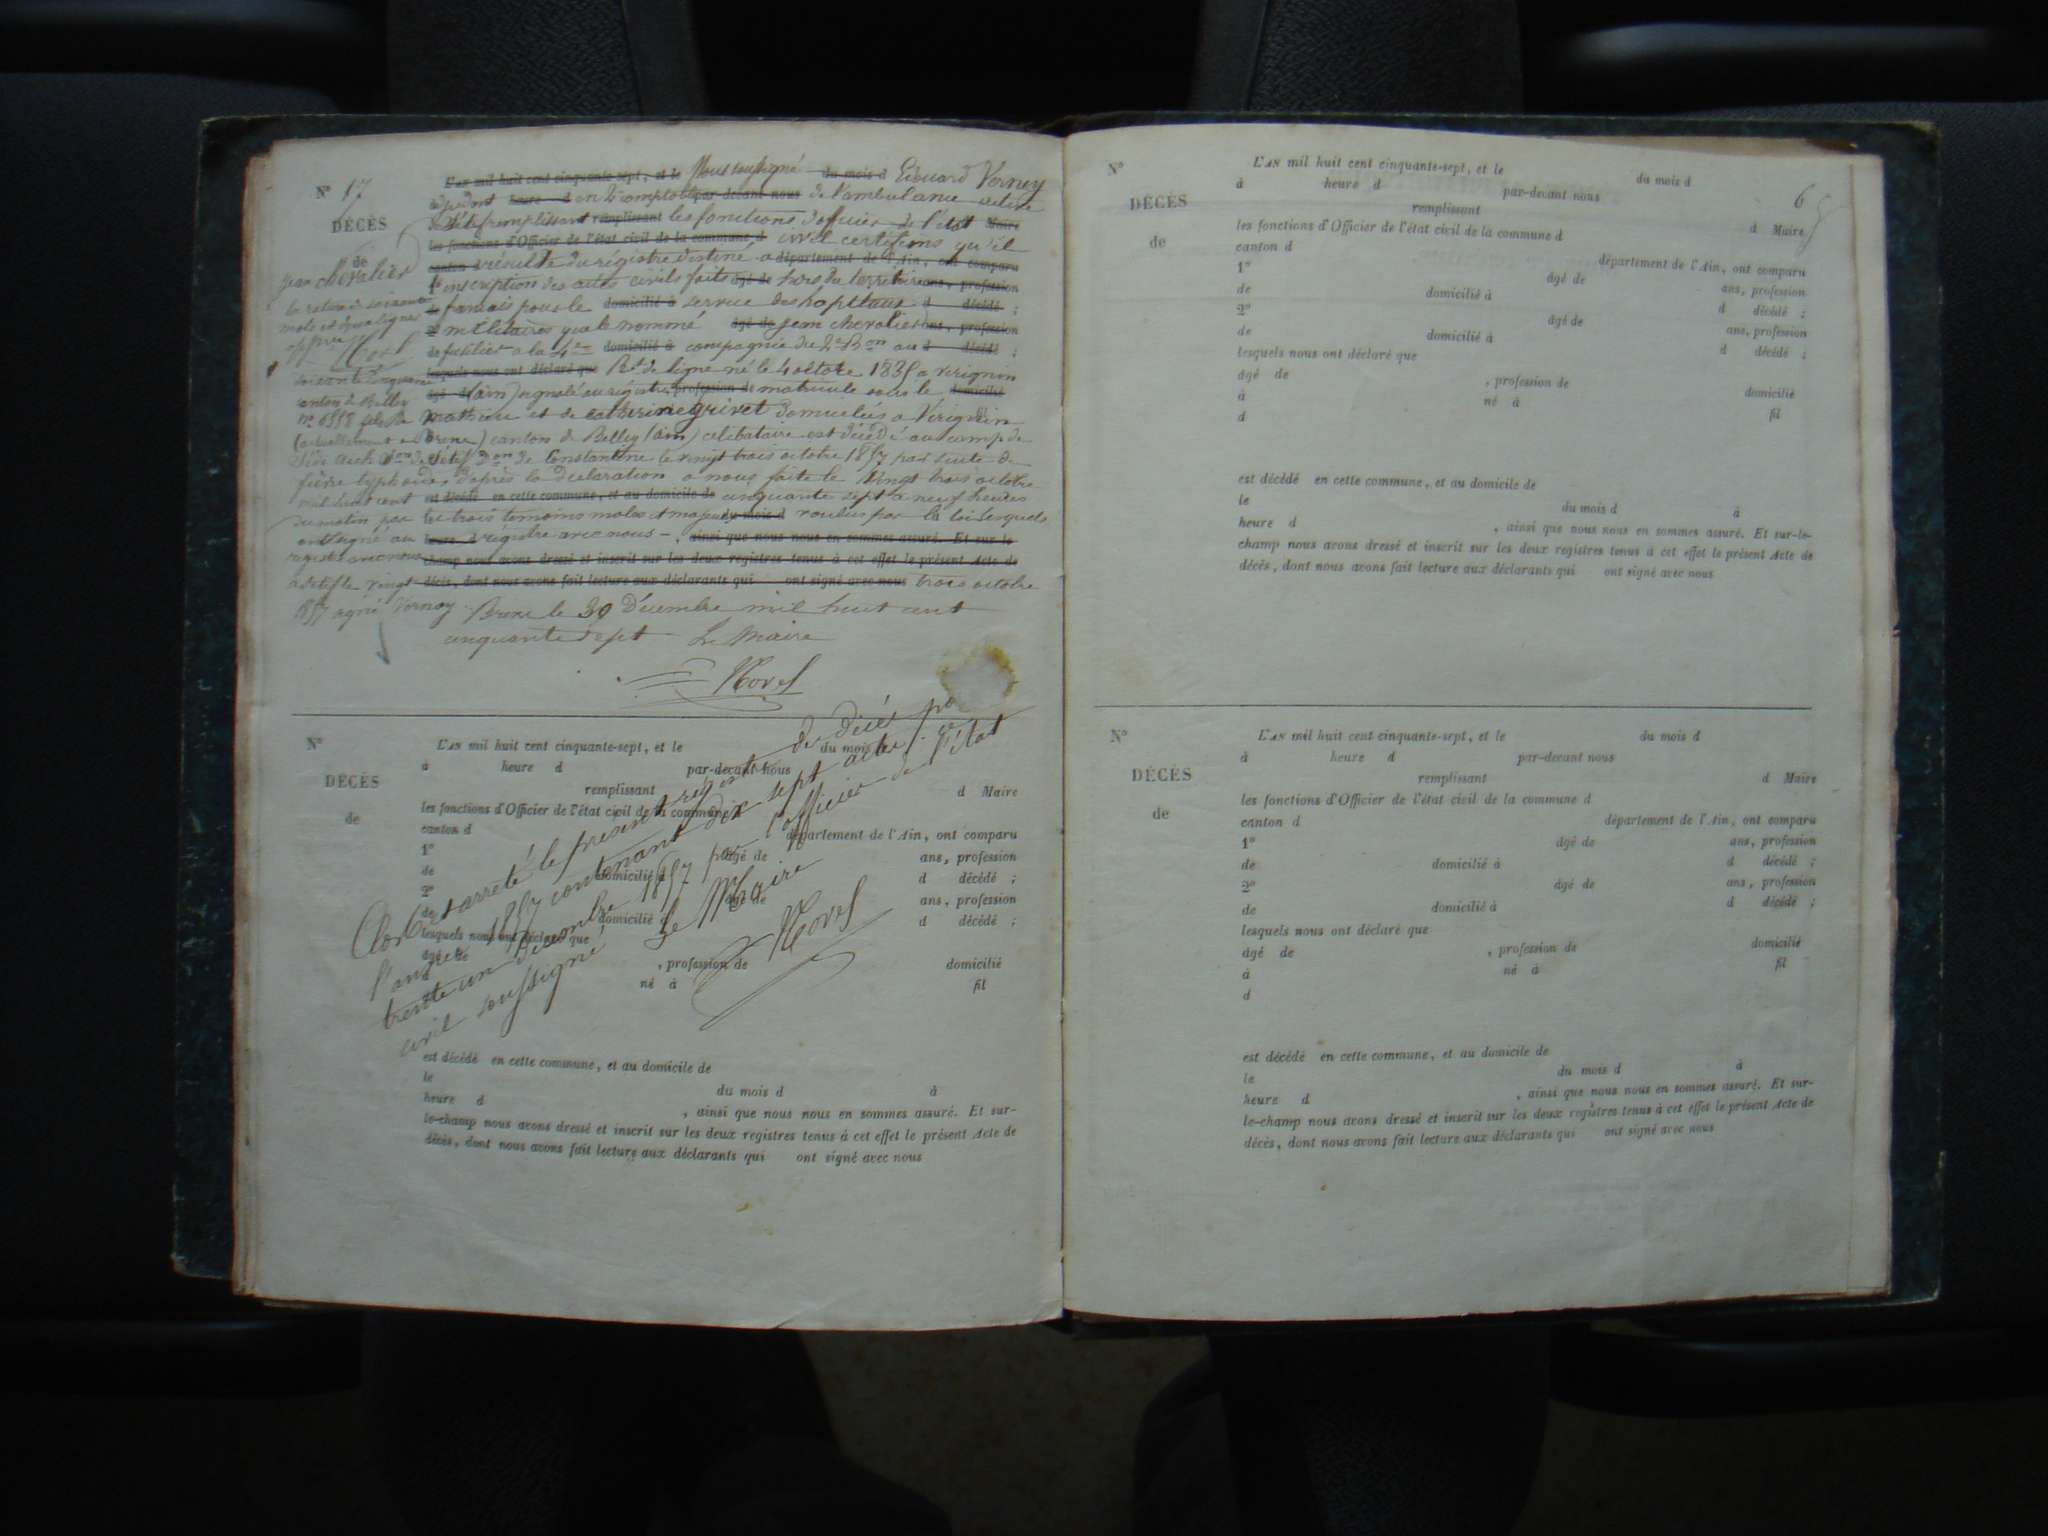 N° 17
DÉCÈS
de
jean chevalier
la rature de soixante
mots et deux lignes
Hovel
L'AN mil huit cent cinquante-sept, et le Nous soussigné du mois d Edouard Vernoy
adjudant heure d en 2d comptable par-devant nous de l'ambulance active
de Sétif remplissant remplissant les fonctions d'officier de l'état Maire
les fonctions d'Officier de l'état civil de la commune d civil certifions qu'il
canton d résulte du registre destiné a département de l'Ain, ont comparu
l'inscription des actes civils faits âgé de hors du territoire ans, profession
de francais pour le domicilié à service des hopitaux d décédé ;
2° militaires que le nommé âgé de jean chevalier ans, profession
de fusilier a la 4e domicilié à compagnie du 2e Bon au d décédé ;
lesquels nous ont déclaré que Rt de ligne né le 4 octobre 1835 a virignin
canton de Belley âgé d (ain) signalé au régistre profession de matricule sous le domicilié
n° 6558 fils de mathieu et de catherine grivet domiciliés a Virignin
(actuellement a Brens) canton de Belley (ain) célibataire est décédé au camp de
de Sétif Don de Constantine le vingt trois octobre 1857 par suite de
fièvre typhoïde, d'après la déclaration a nous faite le vingt trois octobre
mil huit cent est décédé en cette commune, et au domicile de cinquante sept a neuf heures
du matin par les trois temoins males et majeurs du mois d voulus par la loi lesquels
ont signé au heure d régistre avec nous - , ainsi que nous nous en sommes assuré. Et sur-le
registre avec nous champ nous avons dressé et inscrit sur les deux registres tenus à cet effet le présent Acte de
a Setif le vingt décès, dont nous avons fait lecture aux déclarants qui ont signé avec nous trois octobre
1857 signé Vernoy Brens le 30 Décembre mil huit cent
cinquante sept Le Maire
Hovel
N°
DÉCÈS
de
L'AN mil huit cent cinquante-sept, et le du mois d
à heure d par-devant nous
remplissant d Maire
les fonctions d'Officier de l'état civil de la commune d
canton d département de l'Ain, ont comparu
1° âgé de ans, profession
de domicilié à d décédé ;
2° âgé de ans, profession
de domicilié à d décédé ;
lesquels nous ont déclaré que
âgé de , profession de domicilié
à né à fil
d
Clos et arreté le present régistre de décès pour
l'année 1857 contenant dix sept actes
trente un Décembre 1857 par l'officier de l'état
civil soussigné Le Maire
Hovel
est décédé en cette commune, et au domicile de
le du mois d à
heure d , ainsi que nous nous en sommes assuré. Et sur-
le-champ nous avons dressé et inscrit sur les deux registres tenus à cet effet le présent Acte de
décès, dont nous avons fait lecture aux déclarants qui ont signé avec nous
6
N°
DÉCÈS
de
L'AN mil huit cent cinquante-sept, et le du mois d
à heure d par-devant nous
remplissant d Maire
les fonctions d'Officier de l'état civil de la commune d
canton d département de l'Ain, ont comparu
1° âgé de ans, profession
de domicilié à d décédé ;
2° âgé de ans, profession
de domicilié à d décédé ;
lesquels nous ont déclaré que
âgé de , profession de domicilié
à né à fil
d
est décédé en cette commune, et au domicile de
le du mois d à
heure d , ainsi que nous nous en sommes assuré. Et sur-le-
champ nous avons dressé et inscrit sur les deux registres tenus à cet effet le présent Acte de
décès, dont nous avons fait lecture aux déclarants qui ont signé avec nous
N°
DÉCÈS
de
L'AN mil huit cent cinquante-sept, et le du mois d
à heure d par-devant nous
remplissant d Maire
les fonctions d'Officier de l'état civil de la commune d
canton d département de l'Ain, ont comparu
1° âgé de ans, profession
de domicilié à d décédé ;
2° âgé de ans, profession
de domicilié à d décédé ;
lesquels nous ont déclaré que
âgé de , profession de domicilié
à né à fil
d
est décédé en cette commune, et au domicile de
le du mois d à
heure d , ainsi que nous nous en sommes assuré. Et sur-
le-champ nous avons dressé et inscrit sur les deux registres tenus à cet effet le présent Acte de
décès, dont nous avons fait lecture aux déclarants qui ont signé avec nous